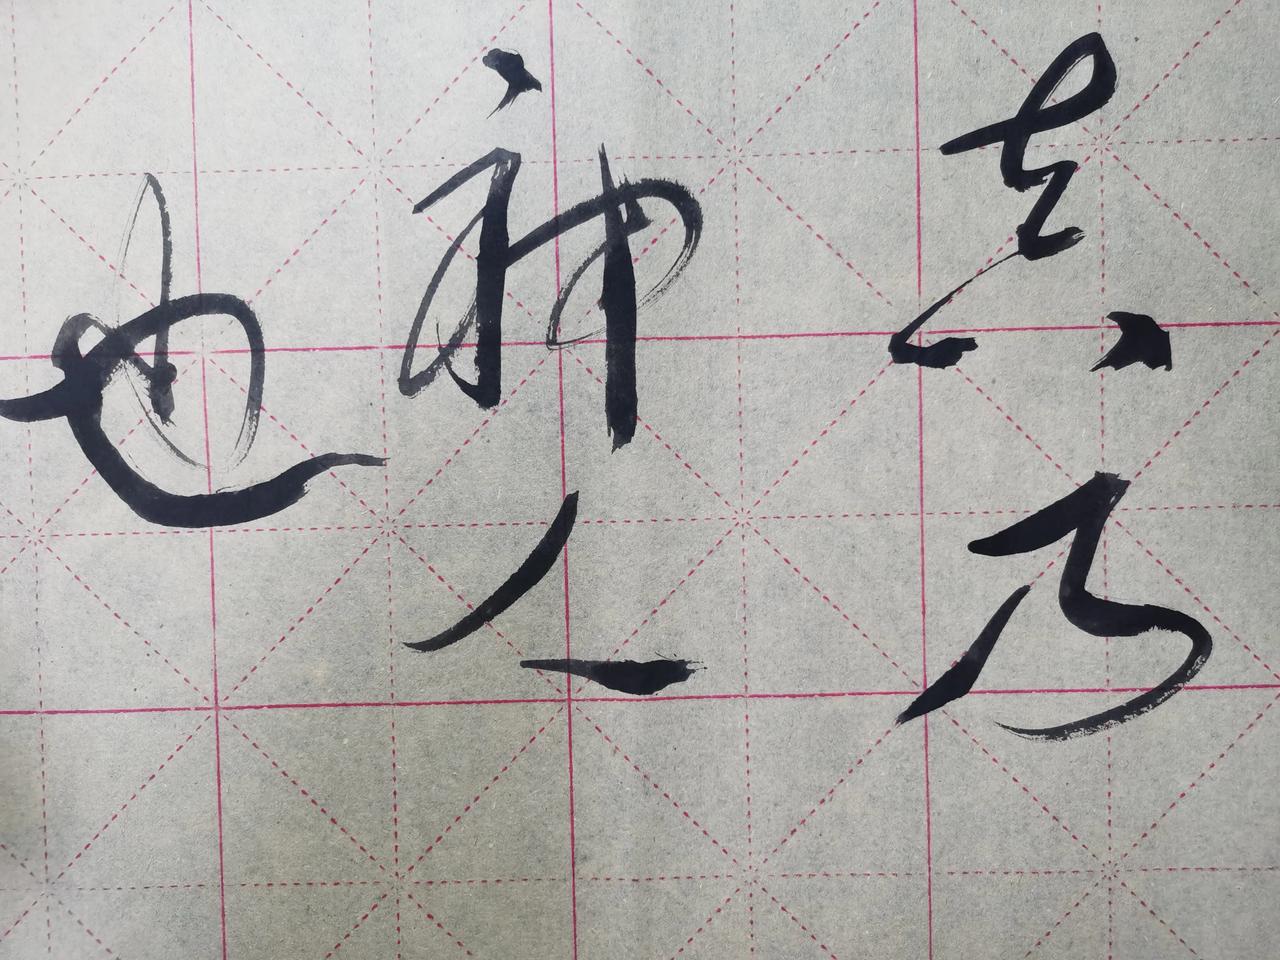 真乃
神人
也